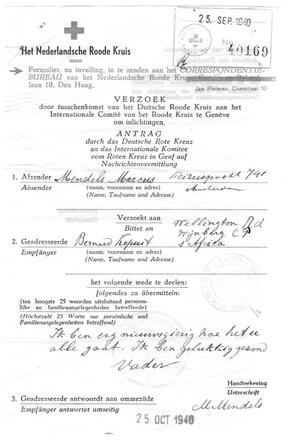 25 SEP. 1940
No. 40169
Het Nederlandsche Roode Kruis
Formulier, na invulling, in te zenden aan het CORRESPONDENTIE-
BUREAU van het Nederlandsche Roode Kruis
laan 10, Den Haag.
Jan Pietersz. Coenstraat 10
VERZOEK
door tusschenkomst van het Duitsche Roode Kruis aan het
Internationale Comité van het Roode Kruis te Genève
om inlichtingen.
ANTRAG
durch das Deutsche Rote Kreuz
an das Internationale Komitee
vom Roten Kreuz in Genf auf
Nachrichtenvermittlung
1. Afzender Mendels Marcus Keizersgracht 741
Absender (naam, voornaam en adres) Amsterdam
(Name, Taufname und Adresse)
Verzoekt aan
Bittet an
Wellington Rd
Wijnberg C.P.
S'Africa
2. Geadresseerde Bernard
Empfänger (naam, voornaam en adres)
(Name, Taufname und Adresse)
het volgende mede te deelen:
folgendes zu übermitteln:
(ten hoogste 25 woorden uitsluitend persoon-
lijke en familieaangelegenheden betreffende)
(Höchstzahl 25 Worte nur persönliche und
Familienangelegenheiten betreffend)
Ik ben erg nieuwsgierig hoe het u
alle gaat. Ik ben gelukkig gezond
Vader
Handteekening
Unterschrift
M. Mendels
3. Geadresseerde antwoordt aan ommezijde
Empfänger antwortet umseitig
25 OCT 1940